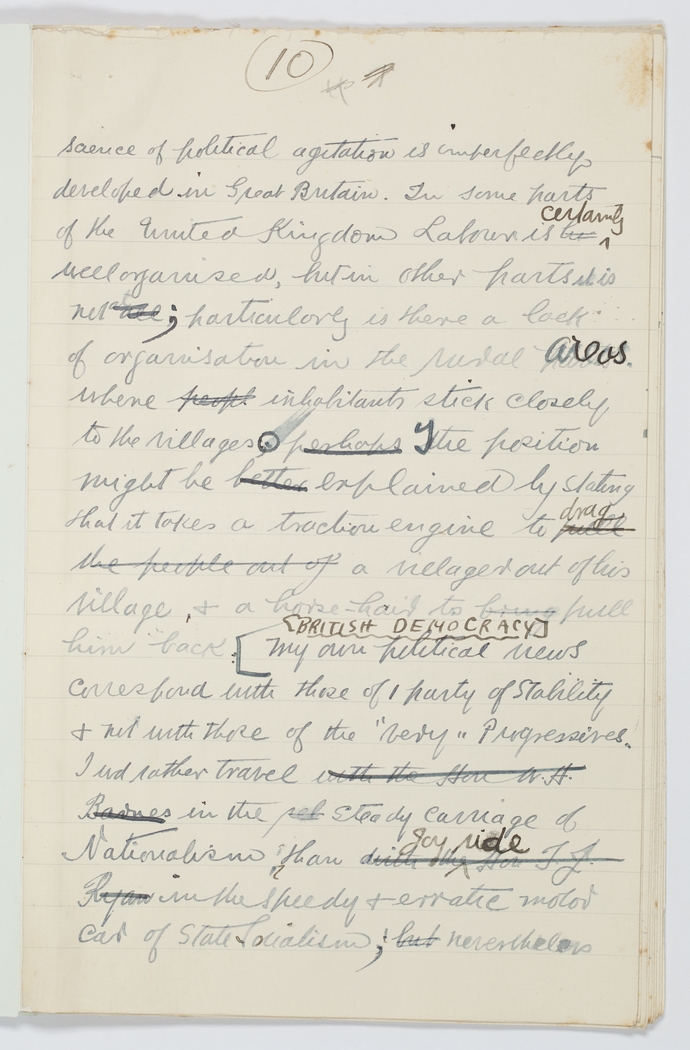 10
science of political agitation is imperfectly
developed in Great Britain. In some parts
certainly
of the United Kingdom Labour is
well organised, but in other parts it is
not ; particularly is there a lack
of organisation in the rural areas.
where peopl inhabitants stick closely
to the villages. perhaps The position
might be better explained by stating
drag
that it takes a traction engine to pull
the people out of a villager out of his
village, & a horse-hair to bring pull
[BRITISH DEMOCRACY]
him "back. [My own political news
correspond with those of 1 party of Stability
& not with those of the "very" Progressives.
I wd rather travel with the Hon W.H.
Barnes in the steady carriage of
joy ride
Nationalism than with the Hon T.J.
Ryan in the speedy & erratic motor
car of State Socialism; but nevertheless